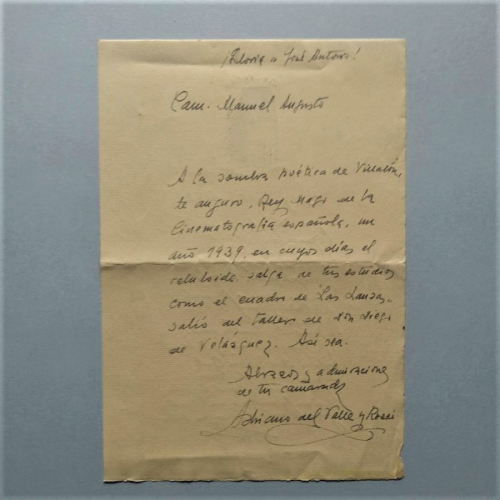 ¡Gloria a José Antonio!
Cam. Manuel Augusto
A la sombra poética de Villalón,
te auguro, Rey Mago de la
Cinematografía española, un
año 1939, en cuyos días el
celuloide salga de tus estudios
como el cuadro de "Las Lanzas"
salió del taller de don Diego
de Velázquez. Así sea.
Abrazos y admiraciones
de tu camarada
Adriano del Valle y Rossi